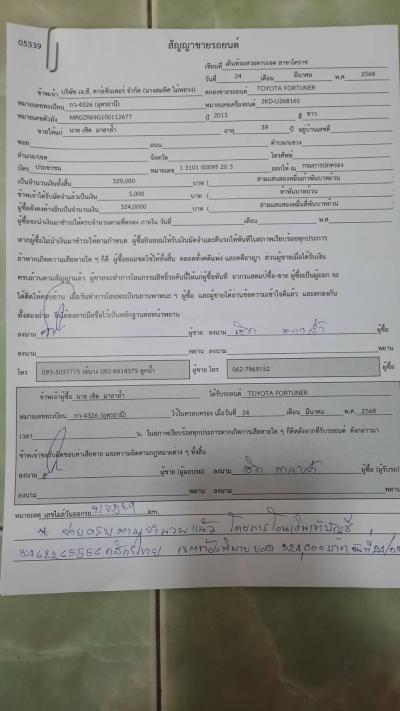 05339
สัญญาขายรถยนต์
เขียนที่ เต็นท์รถสวยดาบเจต สาขาโคราช
วันที่ 24 เดือน มีนาคม พ.ศ 2568
ข้าพเจ้า บริษัท เจ.ที. คาร์เซ็นเตอร์ จำกัด (นางสมพิศ ไม้พลวง) ตกลงขายรถยนต์ TOYOTA FORTUNER
หมายเลขทะเบียน กว-4326 (อุดรธานี) หมายเลขเครื่องยนต์ 2KD-U268160
หมายเลขตัวถัง MR0ZR69G100112677 ปี 2013 สี ขาว
ขายให้แก่ นาย เชิด มาลาล้ำ อายุ 39 ปี อยู่บ้านเลขที่
ซอย ถนน ตำบล/แขวง
อำเภอ/เขต จังหวัด โทรศัพท์
บัตร ประชาชน หมายเลข 1 3101 00095 20 3 ออกให้ ณ กรมการปกครอง
เป็นจำนวนเงินทั้งสิ้น 329,000 บาท ( สามแสนสองหมื่นเก้าพันบาทถ้วน
ข้าพเจ้าได้รับมัดจำแล้วเป็นเงิน 5,000 บาท ( ห้าพันบาทถ้วน
ผู้ซื้อยังคงค้างอีกเป็นจำนวนเงิน 324,0000 บาท ( สามแสนสองหมื่นสี่พันบาทถ้วน
ผู้ซื้อจะนำเงินมาชำระให้ครบจำนวนตามที่ตกลง ภายใน วันที่ เดือน พ.ศ.
หากผู้ซื้อไม่นำเงินมาชำระตามกำหนด ผู้ซื้อยินยอมให้ริบเงินมัดจำและคืนรถให้ทันทีในสภาพเรียบร้อยทุกประการ
ถ้าหากเกิดความเสียหายใด ๆ ก็ดี ผู้ซื้อยอมชดใช้ให้ทั้งสิ้น ตลอดทั้งคดีแพ่ง และคดีอาญา ส่วนผู้ขายเมื่อได้รับเงิน
ครบถ้วนตามสัญญาแล้ว ผู้ขายจะทำการโอนกรรมสิทธิ์รถคันนี้ให้แก่ผู้ซื้อทันที อากรแสตมป์ซื้อ-ขาย ผู้ซื้อเป็นผู้ออก จะ
ได้ติดให้ครบถ้วน เมื่อวันทำการโอนทะเบียนยานพาหนะ ๆ ผู้ซื้อ และผู้ขายได้อ่านข้อความเข้าใจดีแล้ว และตกลงกัน
ทั้งสองฝ่าย จึงได้ลงลายมือชื่อไว้เป็นหลักฐานต่อหน้าพยาน
ลงนาม ผู้ขาย ลงนาม เชิด มาลาล้ำ ผู้ซื้อ
ลงนาม พยาน ลงนาม พยาน
โทร 093-5037775 092-8914379 ผู้ขาย โทร 062-7869152 ผู้ซื้อ
ข้าพเจ้าผู้ซื้อ นาย เชิด มาลาล้ำ ได้รับรถยนต์ TOYOTA FORTUNER
หมายเลขทะเบียน กว-4326 (อุดรธานี) ไว้ในครอบครอง เมื่อวันที่ 24 เดือน มีนาคม พ.ศ. 2568
เวลา น. ในสภาพเรียบร้อยทุกประการหากเกิดการเสียหายใด ๆ ก็ดีหลังจากที่รับรถยนต์ ดังกล่าวมา
ข้าพเจ้าขอรับผิดชอบค่าเสียหาย และความผิดตามกฎหมายต่าง ๆ ทั้งสิ้น
ลงนาม ผู้ขาย (ผู้มอบรถ) ลงนาม เชิด มาลาล้ำ ผู้ซื้อ (ผู้รับรถ)
ลงนาม พยาน ลงนาม พยาน
หมายเหตุ เลขไมล์วันออกรถ km.
* จ่ายครบตามจำนวนแล้ว โดยการโอนเงินเข้าบัญชี
กสิกรไทย ยอด 324,000 บาท วันที่ 24/0